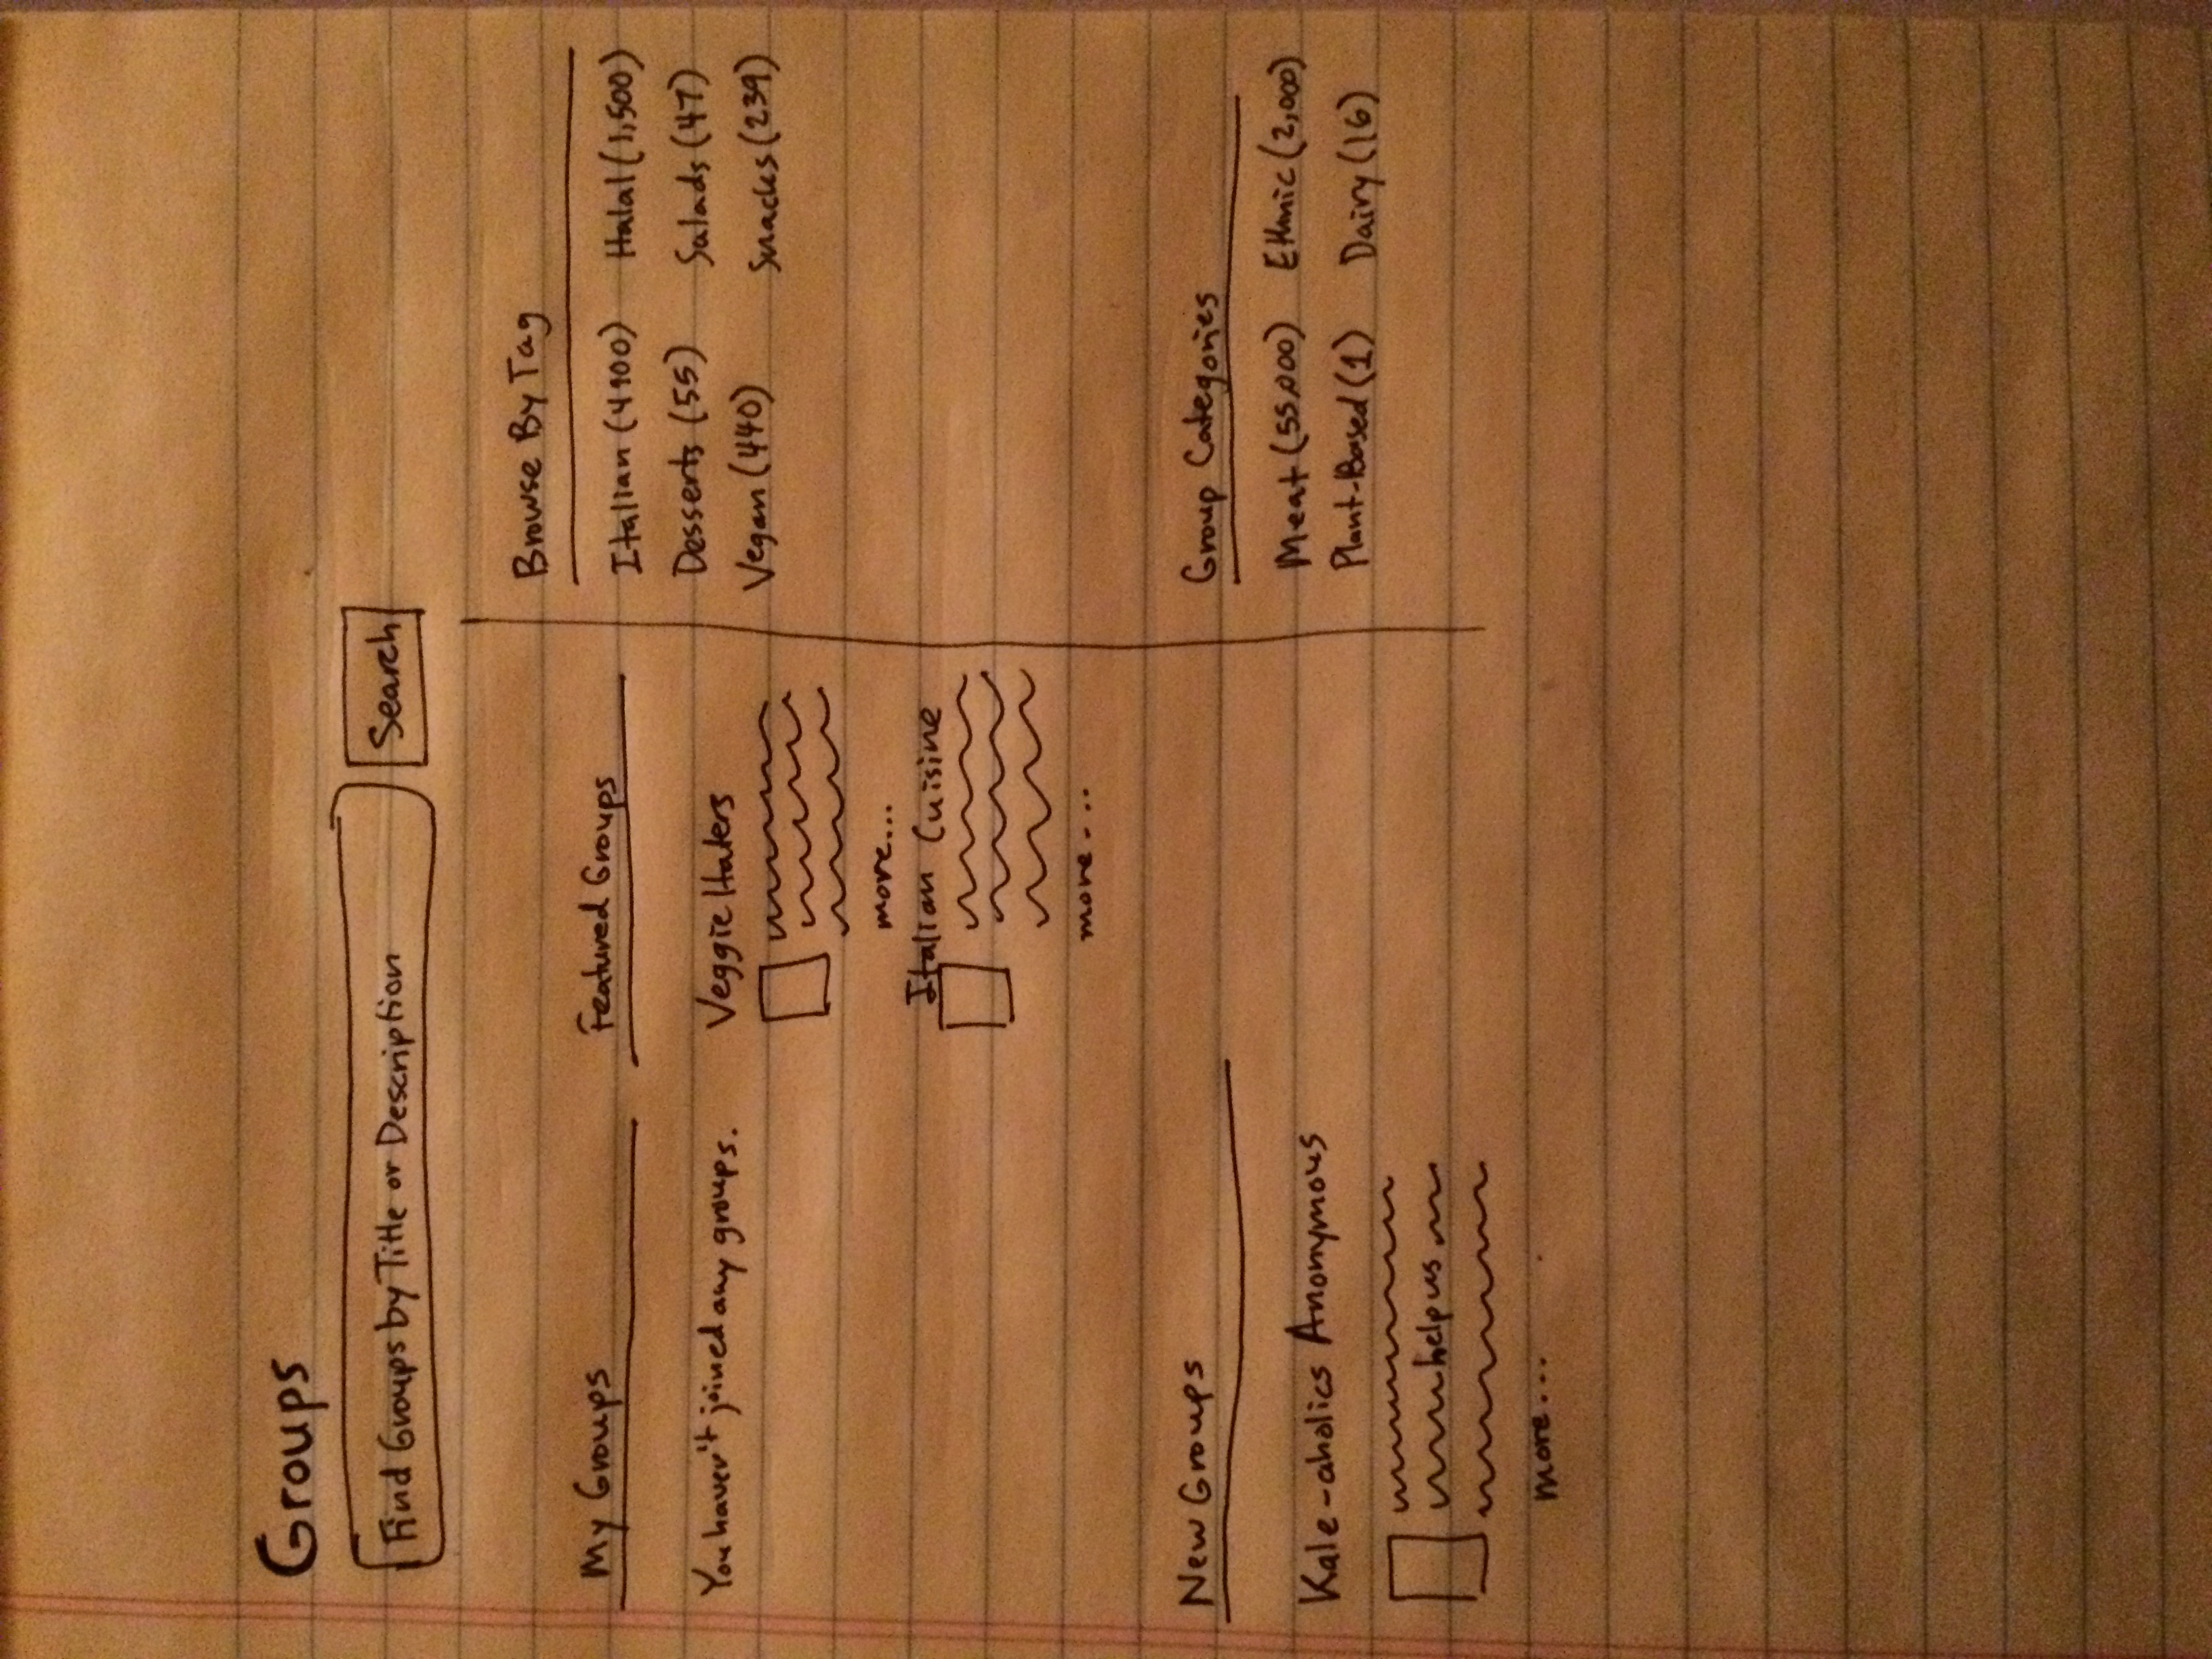 Groups
Find Groups by Title or Description
Search
My Groups
You haven't joined any groups.
Featured Groups
Veggie Haters
more...
Italian Cuisine
more...
New Groups
Kale-aholics Anonymous
help us
more...
Browse By Tag
Italian (4900) Halal (1,500)
Desserts (55) Salads (47)
Vegan (440) Snacks (239)
Group Categories
Meat (55,000) Ethnic (2,000)
Plant-Based (1) Dairy (16)